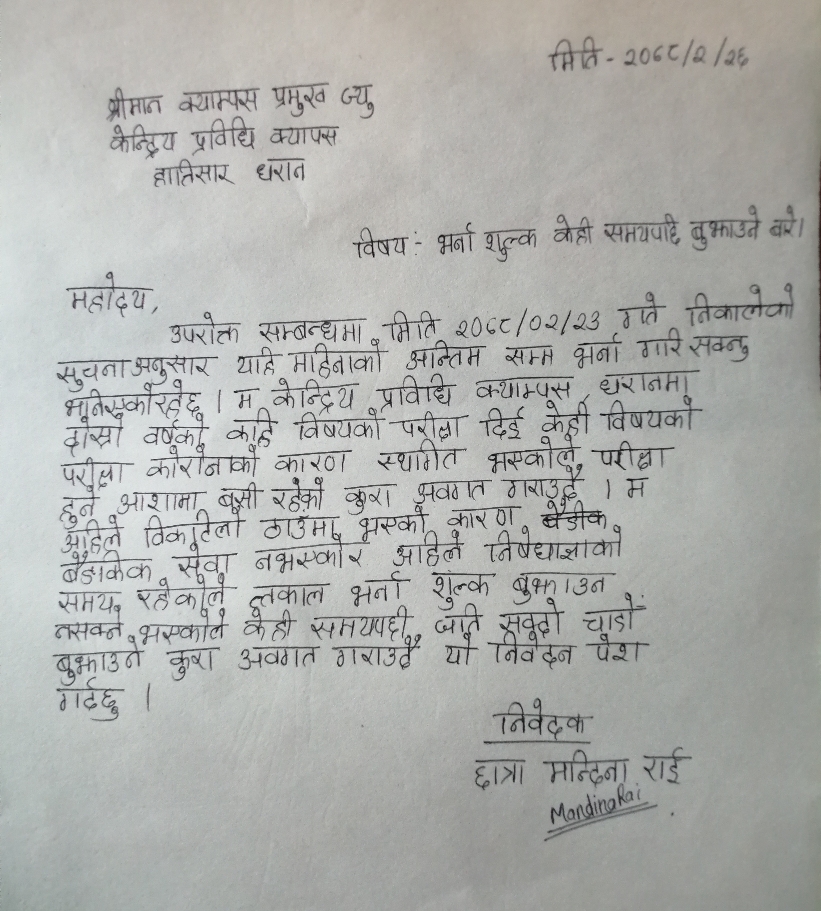 मिति - २०७८/२/२६
श्रीमान क्याम्पस प्रमुख ज्यु
केन्द्रिय प्रविधि क्यापस
हात्तिसार धरान
विषय :- भर्ना शुल्क केही समयपछि बुझाउने बारे।
महोदय,
उपरोक्त सम्बन्धमा मिति २०७८/०२/२३ गते निकालेको
सुचना अनुसार याहि महिनाको अन्तिम सम्म भर्ना गरि सक्नु
भनिएकोरहेछ । म केन्द्रिय प्रविधि क्याम्पस धरानमा
दोस्रो वर्षको काहि विषयको परीक्षा दिई केही विषयको
परीक्षा कोरोनाको कारण स्थगित भएकोले परीक्षा
हुने आशामा बसी रहेको कुरा अवगत गराउँदै । म
अहिले विकटिलो ठाउँमा भएको कारण बैङीक
बैङाकिक सेवा नभएकोर अहिले निषेधाज्ञाको
समय रहेकोले त्काल भर्ना शुल्क बुझाउन
नसक्ने भएकोले केही समयपछी जति सक्दो चाडो
बुझाउने कुरा अवगत गराउँदै यो निवेदन पेश
गर्दछु ।
निवेदक
छात्रा मन्दिना राई
Mandina Rai